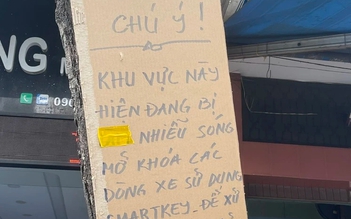 NG
090
CHÚ Ý!
KHU VỰC NÀY
HIỆN ĐANG BỊ
NHIỄU SÓNG
MỞ KHÓA CÁC
DÒNG XE SỬ DỤNG
SMARTKEY. ĐỂ XỬ